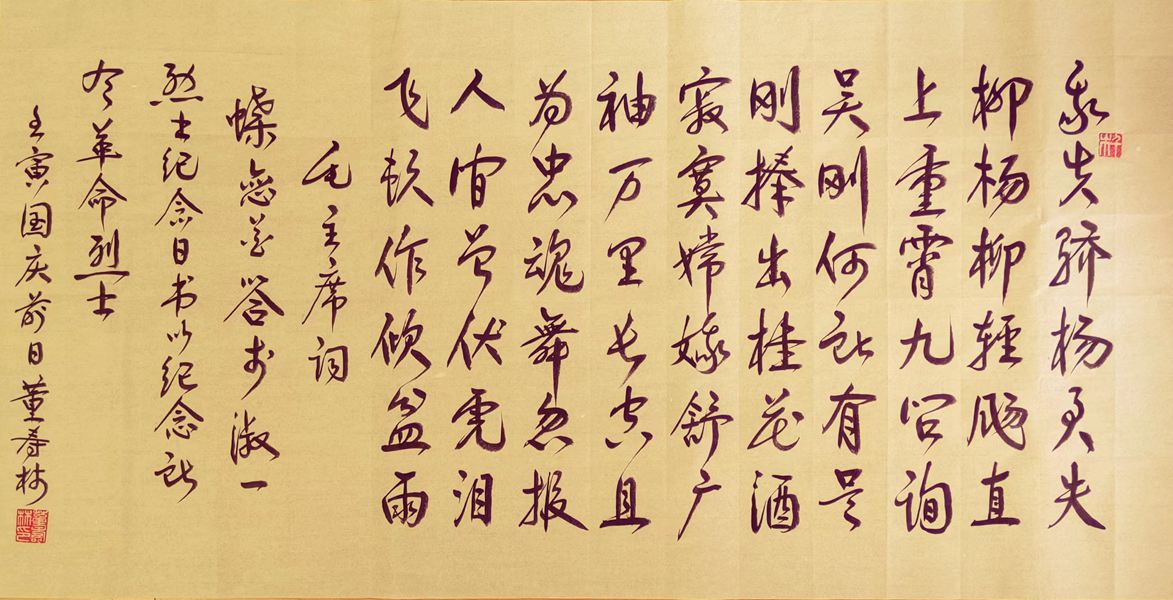 我失骄杨君失
柳杨柳轻飏直
上重霄九问询
吴刚何所有吴
刚捧出桂花酒
寂寞嫦娥舒广
袖万里长空且
为忠魂舞忽报
人间曾伏虎泪
飞顿作倾盆雨
毛主席词
蝶恋花答李淑一
烈士纪念日书以纪念所
有革命烈士
壬寅国庆前日董寿林
董寿林印